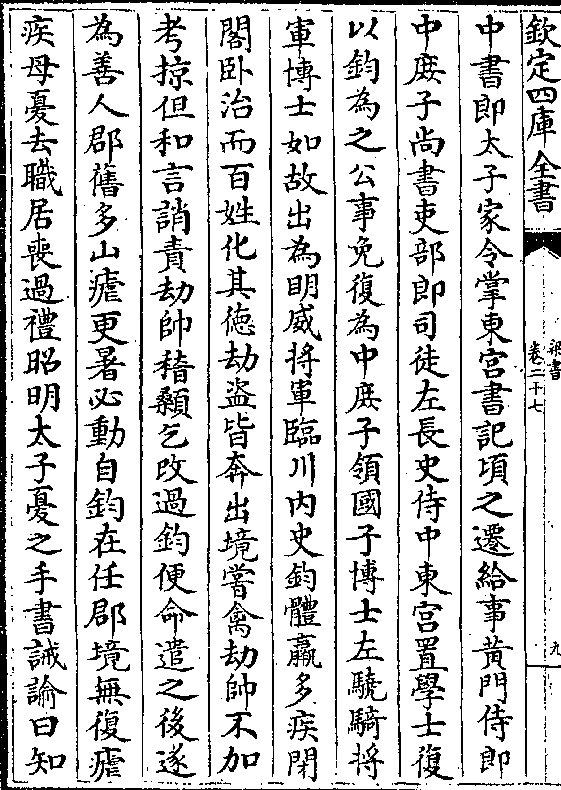 欽定四庫全書
梁書
卷二十七
九
中書郎太子家令掌東宮書記頃之遷給事黄門侍郎
中庻子尚書吏部郎司徒左長史侍中東宮置學士復
以鈞為之公事免復為中庻子領國子博士左驍騎將
軍博士如故出為明威將軍臨川内史鈞體羸多疾閉
閣卧治而百姓化其徳劫盗皆奔出境嘗禽劫帥不加
考掠但和言誚責劫帥稽顙乞改過鈞便命遣之後遂
為善人郡舊多山瘧更暑必動自鈞在任郡境無復瘧
疾母憂去職居喪過禮昭明太子憂之手書誡諭曰知